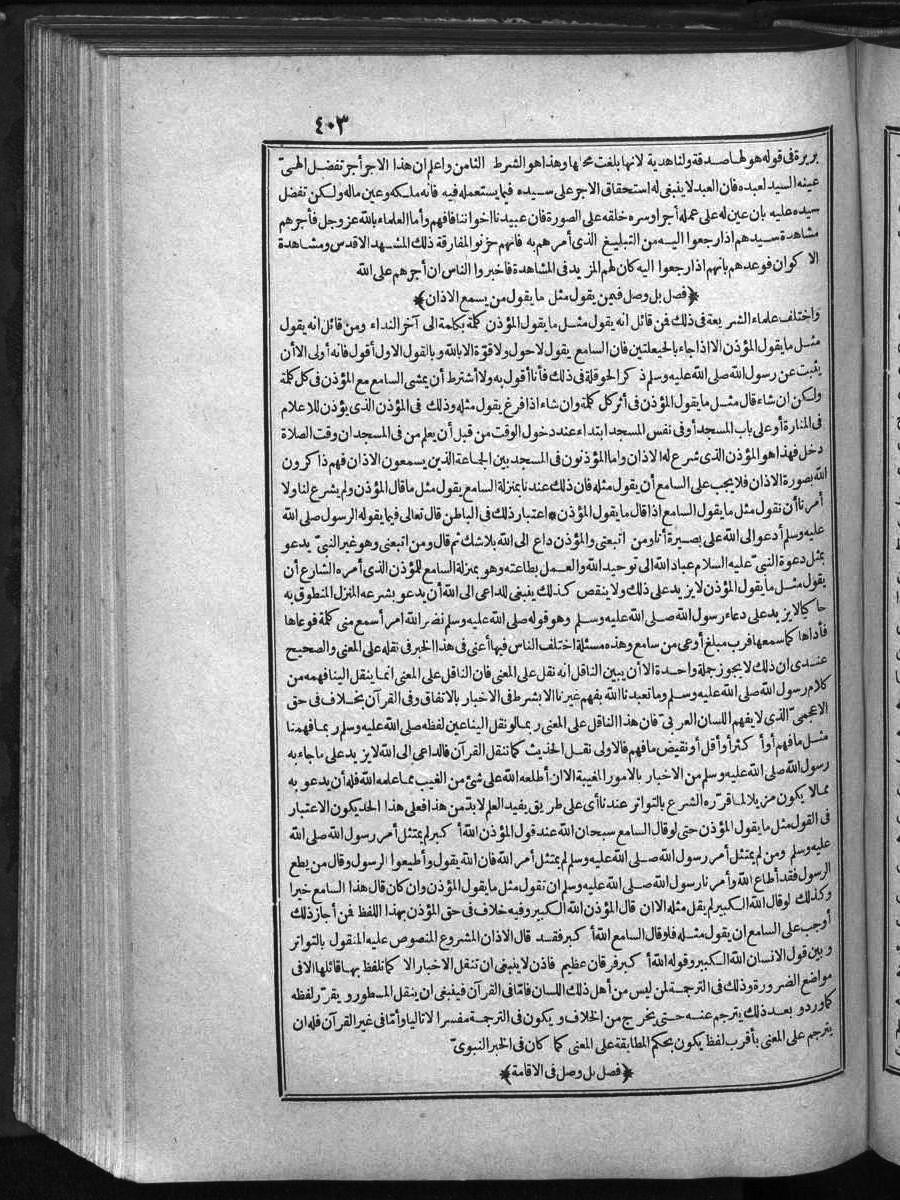 ٤٠٣
بريرة فى قوله هو لها صدقة ولنا هدية لانها بلغت محلها وهذا هو الشرط الثامن واعلم ان هذا الاجر أجر تفضل الهىّ
عينه السيد لعبده فان العبد لا ينبغى له استحقاق الاجر على سيده فيما يستعمله فيه فانه ملكه وعين ماله ولكن تفضل
سيده عليه بان عين له على عمله أجرا وسره خلقه على الصورة فان عبيدنا اخواننا فافهم وأما العلماء بالله عز وجل فأجرهم
مشاهدة سيدهم اذا رجعوا اليه من التبليغ الذى أمرهم به فانهم حزنوا لمفارقة ذلك المشهد الاقدس ومشاهدة
الاكوان فوعدهم بانهم اذا رجعوا اليه كان لهم المزيد فى المشاهدة فاخبروا الناس ان أجرهم على الله
﴿فصل بل وصل فيمن يقول مثل ما يقول من يسمع الاذان﴾
واختلف علماء الشريعة فى ذلك فمن قائل انه يقول مثل ما يقول المؤذن كلة بكلمة الى آخر النداء ومن قائل انه يقول
مثل ما يقول المؤذن الا اذا جاء بالحيعلتين فان السامع يقول لا حول ولا قوّة الا بالله وبالقول الاول أقول فانه أولى الا أن
يثبت عن رسول الله صلى الله عليه وسلم ذكر الحوقلة فى ذلك فأنا أقول به ولا أشترط أن يمشى السامع مع المؤذن فى كل كلة
ولكن ان شاء قال مثل ما يقول المؤذن فى أثر كل كلة وان شاء اذا فرغ يقول مثله وذلك فى المؤذن الذى يؤذن للاعلام
فى المنارة أو على باب المسجد أو فى نفس المسجد ابتداء عند دخول الوقت من قبل أن يعلم من فى المسجد ان وقت الصلاة
دخل فهذا هو المؤذن الذى شرع له الاذان واما المؤذنون فى المسجد بين الجماعة الذين يسمعون الاذان فهم ذاكرون
الله بصورة الاذان فلا يجب على السامع أن يقول مثله فان ذلك عندنا بمنزلة السامع يقول مثل ما قال المؤذن ولم يشرع لنا ولا
أمرنا أن نقول مثل ما يقول السامع اذا قال ما يقول المؤذن * اعتبار ذلك فى الباطن قال تعالى فيما يقوله الرسول صلى الله
عليه وسلم أدعو الى الله على بصيرة أنا ومن اتبعنى والمؤذن داع الى الله بلاشك ثم قال ومن اتبعنى وهو غير النبىّ يدعو
بمثل دعوة النبىّ عليه السلام عباد الله الى توحيد الله والعمل بطاعته وهو بمنزلة السامع للمؤذن الذى أمره الشارع أن
يقول مثل ما يقول المؤذن لا يزيد على ذلك ولا ينقص كذلك ينبغى للداعى الى الله أن يدعو بشرعه المنزل المنطوق به
حاكيا لا يزيد على دعاء رسول الله صلى الله عليه وسلم وهو قوله صلى الله عليه وسلم نضر الله امرأ سمع منى كلة فوعاها
فأداها كما سمعها فرب مبلغ أوعى من سامع وهذه مسئلة اختلف الناس فيها أعنى فى هذا الخبر فى نقله على المعنى والصحيح
عندى ان ذلك لا يجوز جملة واحدة الا أن يبين الناقل انه نقل على المعنى فان الناقل على المعنى انما ينقل الينا فهمه من
كلام رسول الله صلى الله عليه وسلم وما تعبدنا الله بفهم غيرنا الا بشرط فى الاخبار بالاتفاق وفى القرآن بخلاف فى حق
الاعجمىّ الذى لا يفهم اللسان العربىّ فان هذا الناقل على المعنى ربما لو نقل الينا عين لفظه صلى الله عليه وسلم ربما فهمنا
مثل ما فهم أو أكثر أو أقل أو نقيض ما فهم فالاولى نقل الحديث كما تنقل القرآن فالداعى الى الله لا يزيد على ما جاء به
رسول الله صلى الله عليه وسلم من الاخبار بالامور المغيبة الا ان أطلعه الله على شئ من الغيب مما علمه الله فله أن يدعو به
مما لا يكون مزيلا لما قرّره الشرع بالتواتر عندنا أى على طريق يفيد العلم لا بدّ من هذا فعلى هذا الحد يكون الاعتبار
فى القول مثل ما يقول المؤذن حتى لو قال السامع سبحان الله عند قول المؤذن الله أكبر لم يمتثل أمر رسول الله صلى الله
عليه وسلم ومن لم يمتثل أمر رسول الله صلى الله عليه وسلم لم يمتثل أمر الله فان الله يقول وأطيعوا الرسول وقال من يطع
الرسول فقد أطاع الله وأمرنا رسول الله صلى الله عليه وسلم ان نقول مثل ما يقول المؤذن وان كان قال هذا السامع خيرا
وكذلك لو قال الله الكبير لم يقل مثله الا ان قال المؤذن الله الكبير وفيه خلاف فى حق المؤذن بهذا اللفظ فمن أجاز ذلك
أوجب على السامع ان يقول مثله فلو قال السامع الله أكبر فقد قال الاذان المشروع المنصوص عليه المنقول بالتواتر
وبين قول الانسان الله الكبير وقوله الله أكبر فرقان عظيم فاذن لا ينبغى ان تنقل الاخبار الا كما تلفظ بها قائلها الا فى
مواضع الضرورة وذلك فى الترجمة لمن ليس من أهل ذلك اللسان فامّا فى القرآن فينبغى ان ينقل المسطور ويقرّر لفظه
كما ورد وبعد ذلك يترجم عنه حتى يخرج من الخلاف ويكون فى الترجمة مفسرا لا تاليا وأمّا فى غير القرآن فله ان
يترجم على المعنى بأقرب لفظ يكون بحكم المطابقة على المعنى كما كان فى الخبر النبوىّ
﴿فصل بل وصل فى الاقامة﴾